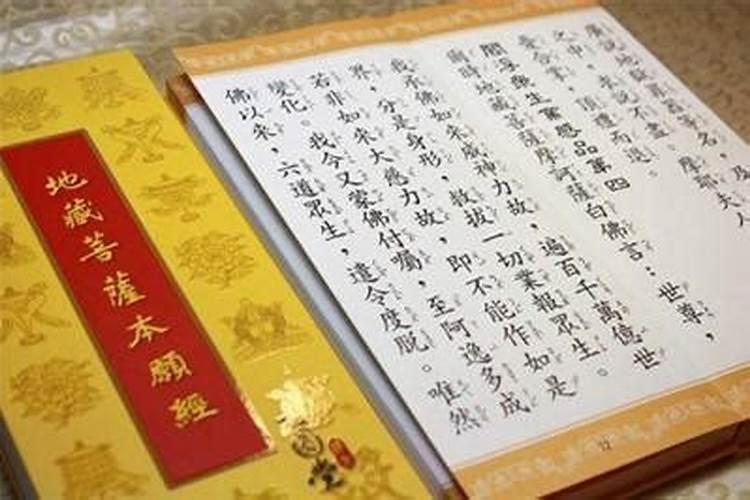 地藏菩薩本願經
說地獄罪器等名，及
之中，求說不盡。摩耶夫人
憂合掌，頂禮而退。
閻浮眾生業感品第四
爾時地藏菩薩摩訶薩白佛言：世尊，
我承佛如來威神力故，遍百千萬億世
界，分是身形，救拔一切業報眾生。
若非如來大慈力故，即不能作如是
變化。我今又蒙佛付囑，至阿逸多成
佛以來，六道眾生，遣令度脫。唯然